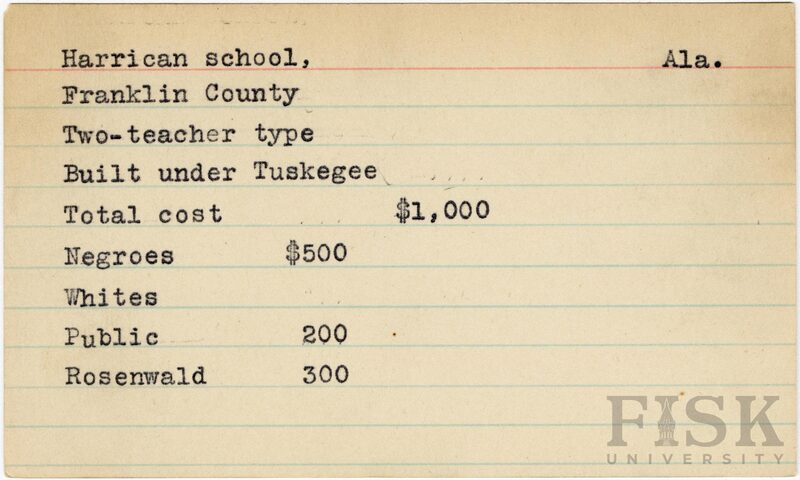 Harrican school, Ala.
Franklin County
Two-teacher type
Built under Tuskegee
Total cost $1,000
Negroes $500
Whites
Public 200
Rosenwald 300
FISK
UNIVERSITY